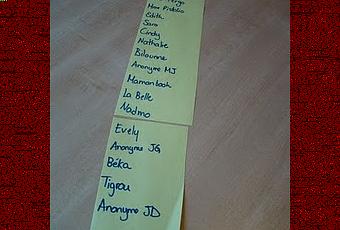 Edith
Sara
Cindy
Nathalie
Bilounne
Anonyme MJ
Mamanbook
La Belle
Nadmo
Evely
Anonyme JG
Béka
Tigrou
Anonyme JD